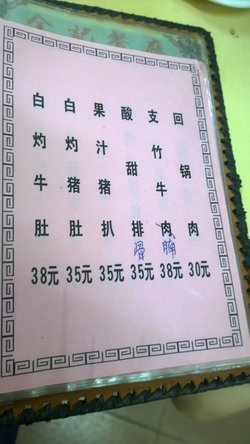 白灼牛肚38元
白灼猪肚35元
果汁猪扒35元
酸甜排骨35元
支竹牛肉腩38元
回锅肉30元